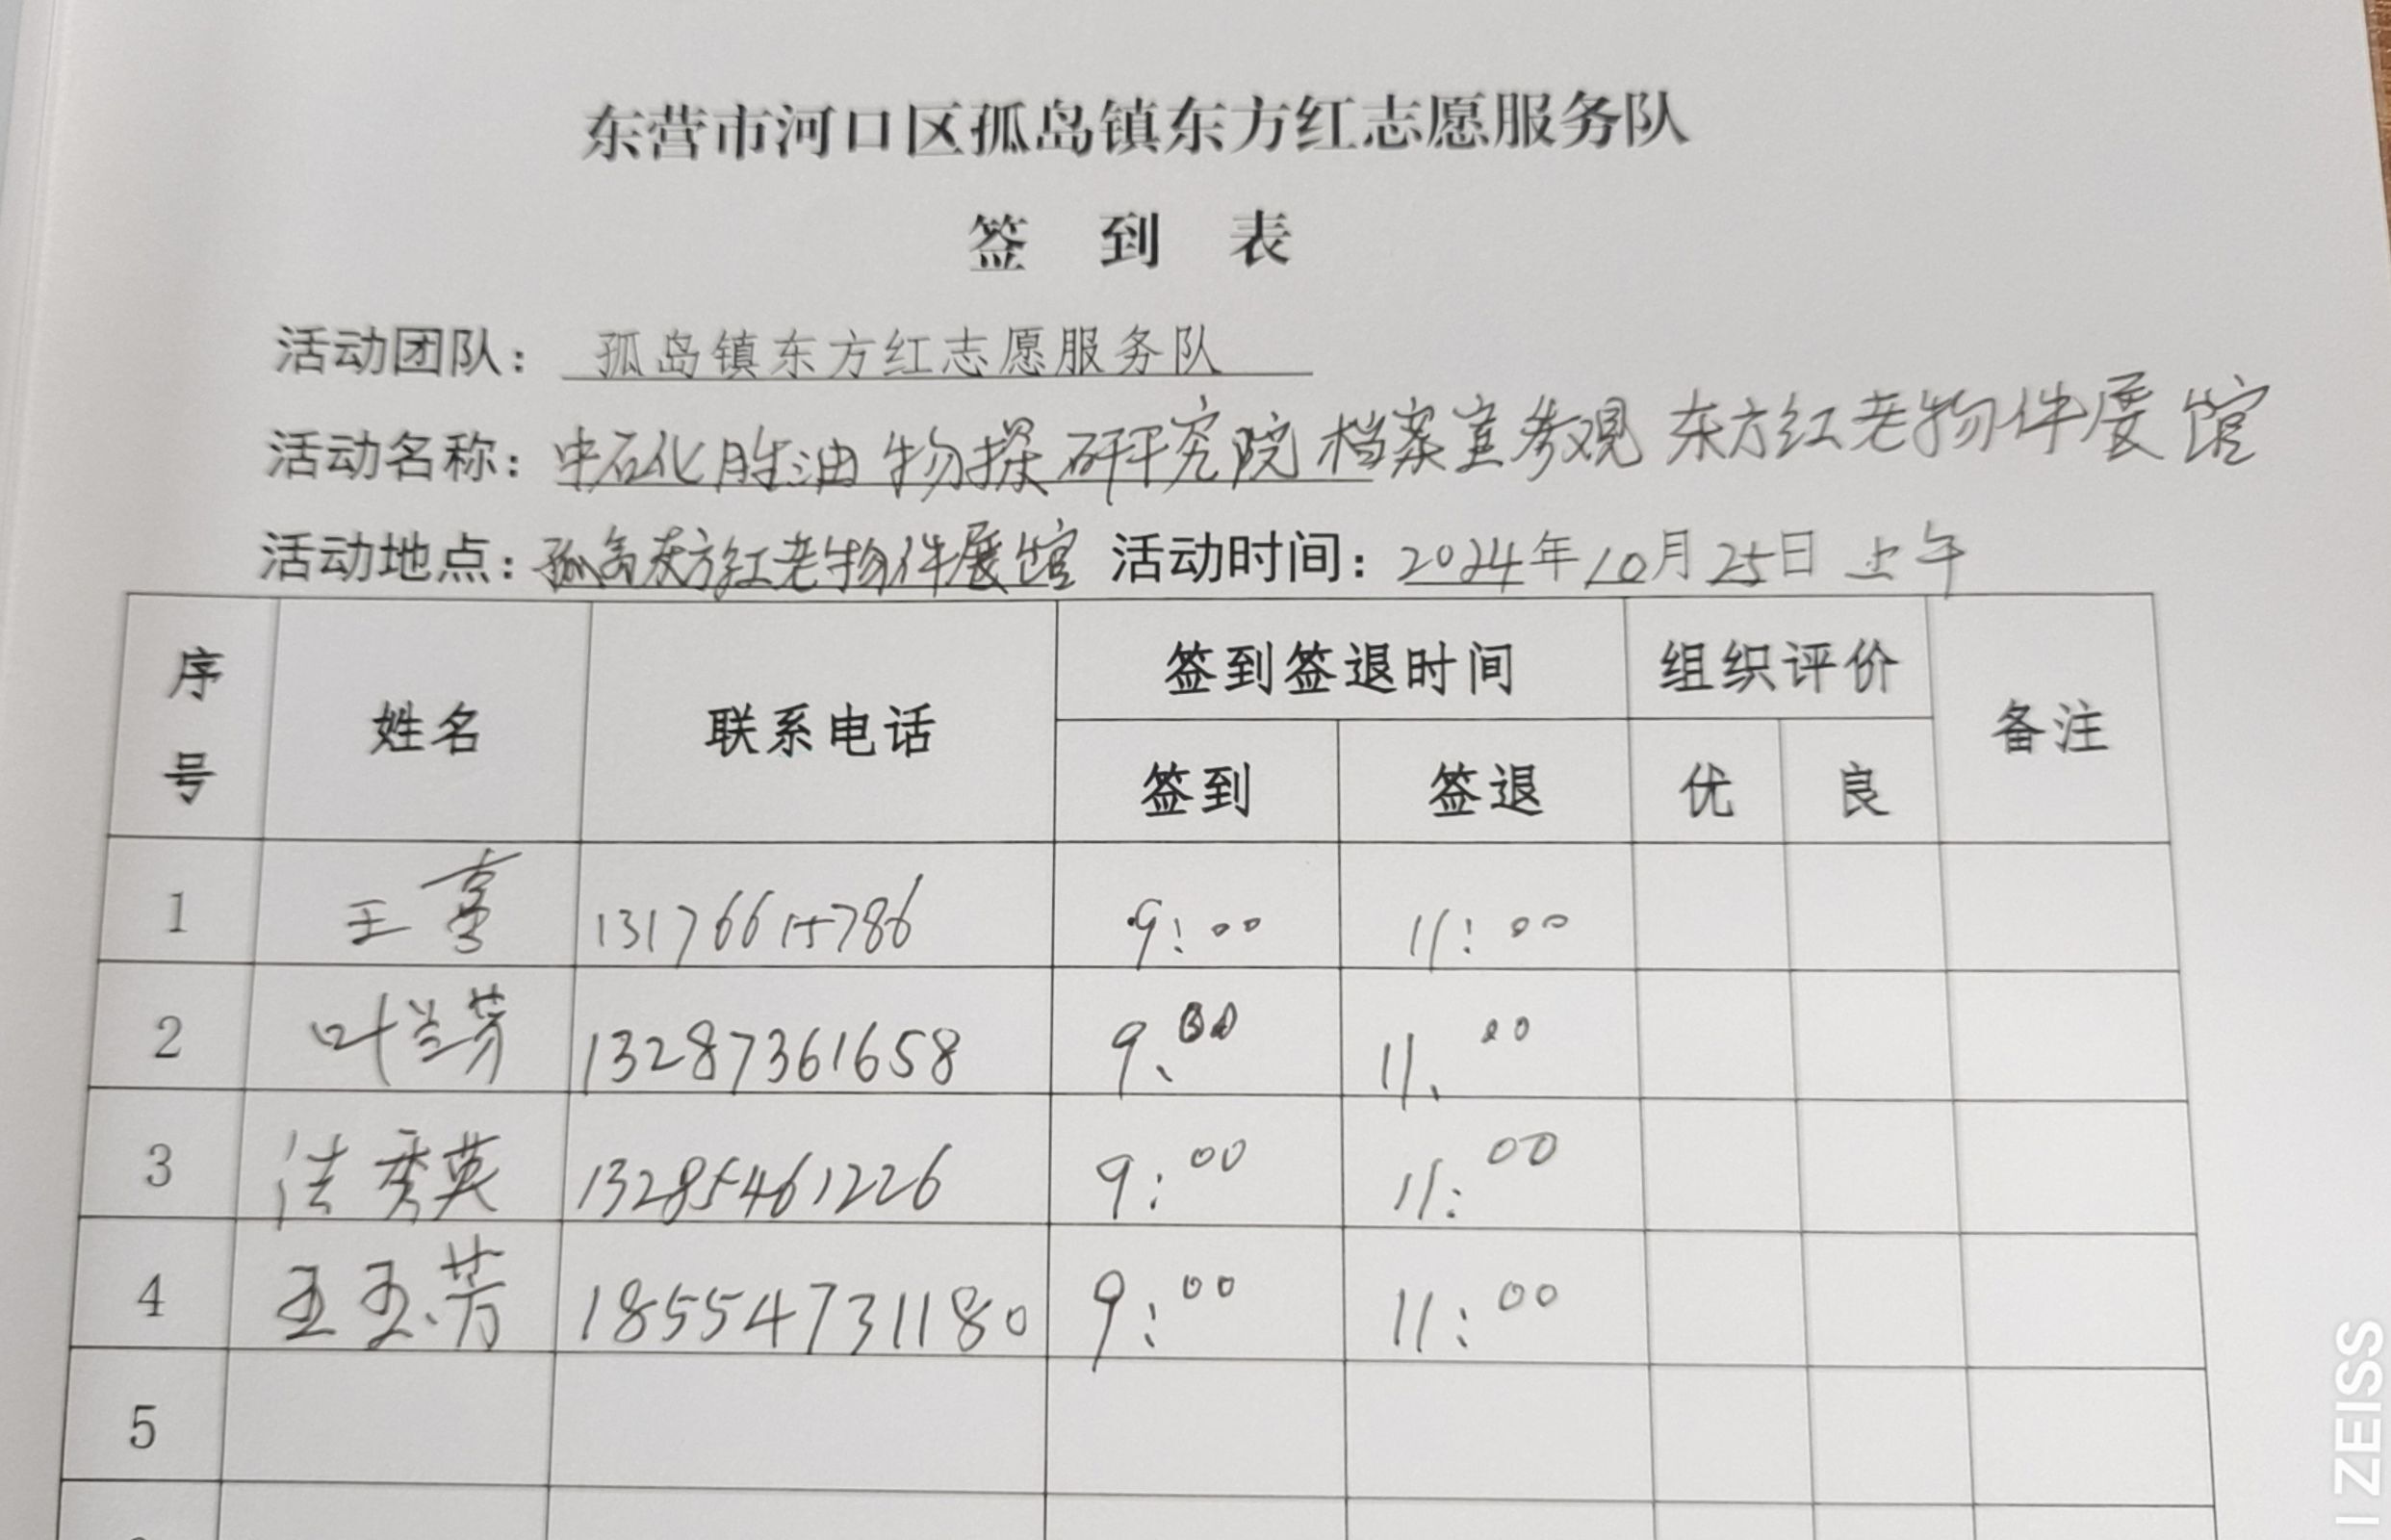 东营市河口区孤岛镇东方红志愿服务队
签 到 表
活动团队： 孤岛镇东方红志愿服务队
活动名称：中石化胜油物探研究院档案室参观东方红老物件展馆
活动地点：孤岛东方红老物件展馆 活动时间：2024年10月25日上午
序号 姓名 联系电话 签到签退时间 组织评价 备注
签到 签退 优 良
1 王 13176615786 9:00 11:00
2 叶兰芳 13287361658 9、00 11、00
3 秀英 13285461226 9:00 11:00
4 王玉芳 18554731180 9:00 11:00
5
ZEISS